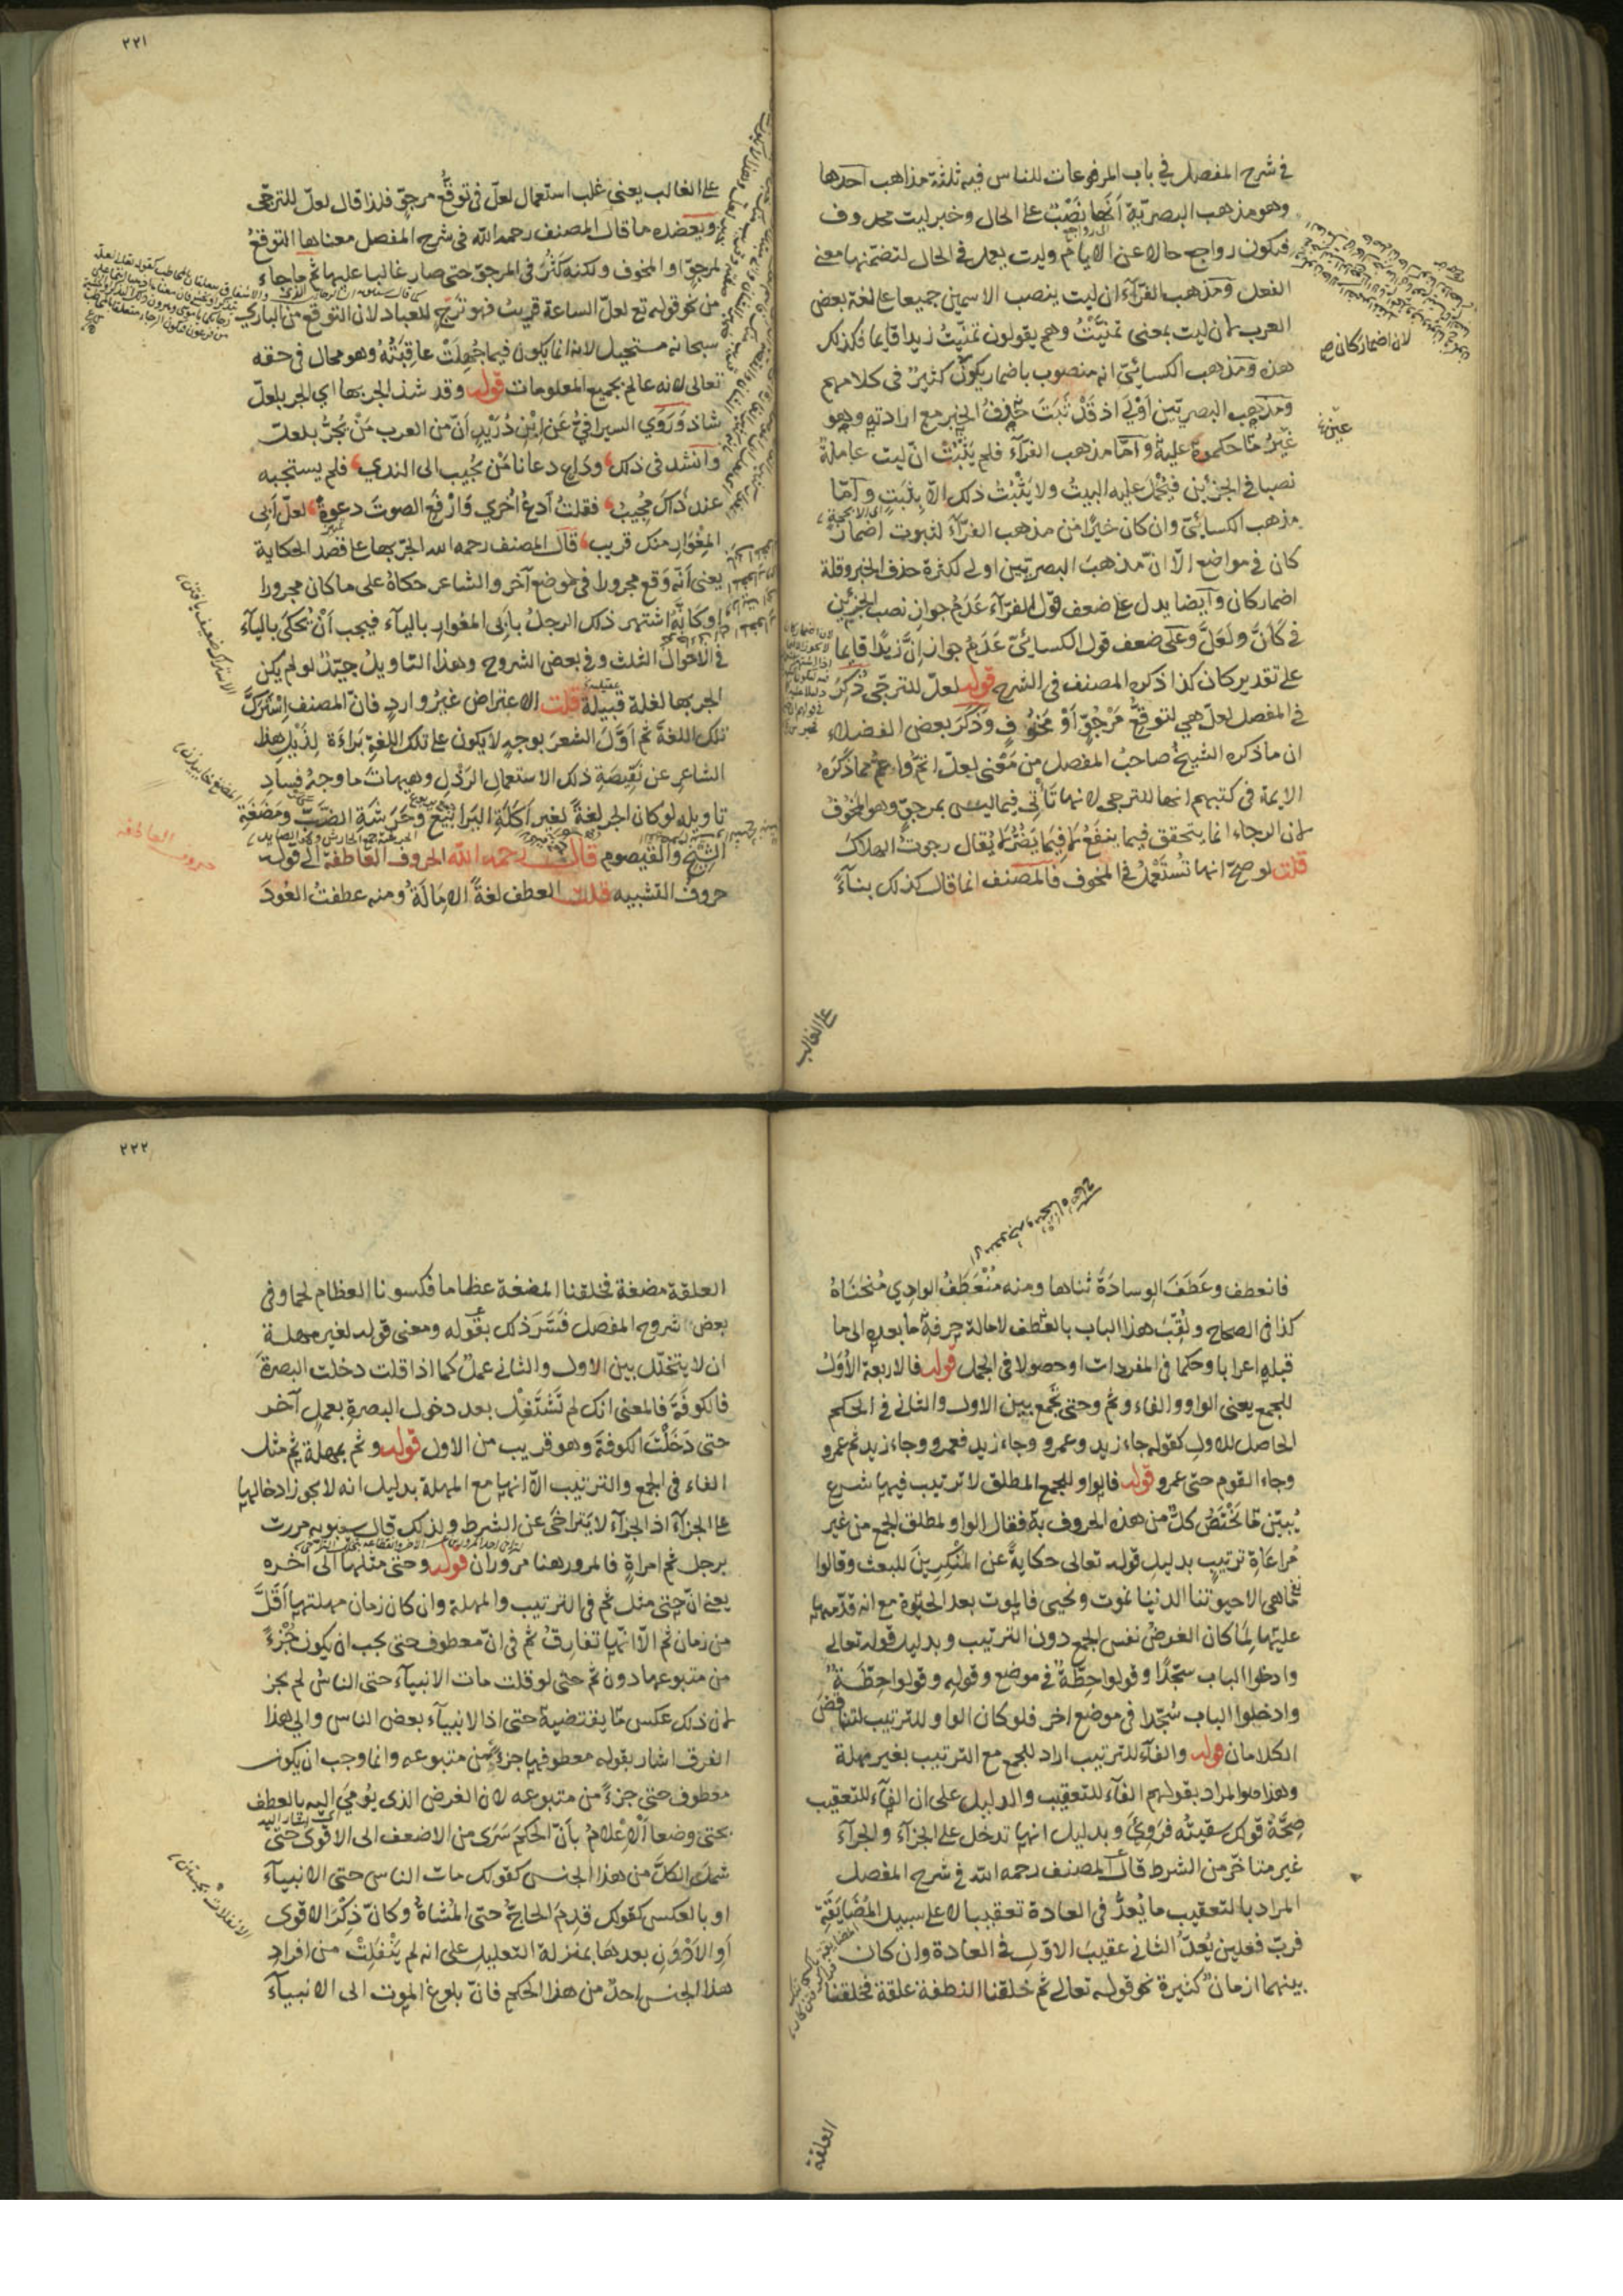 في شرح المفصل في باب المرفوعات للناس فيه ثلثة مذاهب احدها
وهو مذهب البصريّة أنّها نَصْبٌ على الحال وخبر ليت محذوف
فيكون رواجع حالا عن الايام وليت يعمل في الحال لتضمنها معنى
الفعل ومذهب الفرّآء ان ليت ينصب الاسمين جميعا على لغة بعض
العرب لان ليت بمعنى تمنّيتُ وهم يقولون تمنّيتُ زيدا قايما فكذلك
هذه ومذهب الكسائيّ انه منصوب باضمار يكون كثيرٌ في كلامهم
ومذهب البصريّين أَوْلي اذ قَدْ ثَبَتَ حذفُ الخبر مع ارادته وهو
غَيْرُ ما حكموه عليه وأمّا مذهب الفرّآء فلم يَثْبُتْ انّ ليت عاملة
نصبا في الجزئين فيُحْمَل عليه البيتُ ولا يَثْبُتُ ذلك الّا بِثَبَتٍ وأمّا
مذهب الكسائيّ وان كان خيرًا من مذهب الفرّآء لثبوت اضمار
كان في مواضع الّا انّ مذهبَ البصريّين اولى لكثرة حذف الخبر وقلة
اضمار كان وأيضا يدل على ضعف قول الفرّآء عَدَمُ جوازِ نصب الجزئين
في كَأنَّ ولَعَلَّ وعلى ضعف قول الكسائيّ عَدَمُ جواز إنَّ زيدًا قايما
على تقدير كان كذا ذكره المصنف في الشرح قوله لعلّ للترجّي ذُكِرَ
في المفصل لعلّ هي لتوقّعِ مَرْجُوٍّ أَوْ مَخُوفٍ وذَكَرَ بعض الفضلاء
ان ما ذكره الشيخُ صاحبُ المفصل من مَعْنى لعلّ اتمّ واعمّ مما ذَكَرَه
الايمة في كتبهم انها للترجي لانها تَأتي فيما ليس بمرجوّ وهو المَخُوفُ
لان الرجاء انما يتحقق فيما ينفعُ لا فيما يَضُرُّ لا يُقال رجوتُ الهلاكَ
قلت لو صحّ انها تُسْتَعْمَلُ في المخوف فالمصنف انما قال كذلك بنآءً
لان اضمار كان
على الغالب
٢٢١
على الغالب يعني غلب استعمال لعلّ في توقُّعِ مرجوّ فلذا قال لعلّ للترجّي
ويعضده ما قال المصنف رحمه الله في شرح المفصل معناها التوقعُ
لمرجوٍّ او المخوف ولكنه كَثُرَ في المرجوّ حتى صار غالبا عليها ثم ما جاء
من نحو قوله تع لعلّ الساعة قريبٌ فهو تَرَجٍّ للعباد لان التوقع من الباري
سبحانه مستحيل لانه انما يكون فيما جُهِلَتْ عاقِبَتُهُ وهو محال في حقه
تعالى لانه عالم بجميع المعلومات قوله وقد شذ الجر بها اي الجر بلعلّ
شاذ ورَوَي السيرافيُّ عَنْ ابْنِ دُرَيْدٍ أنّ من العرب مَنْ يَجُرُّ بلعلّ
وأنشد في ذلك وداع دعانا مَنْ يُجيب الى الندي فلم يستجبه
عند ذَاكَ مُجِيبُ فقلتُ اُدعُ اُخري وَارْفَعِ الصوتَ دعوةً لعلّ أبي
المِغْوَارِ منك قريب قال المصنف رحمه الله الجرّ بها على قصد الحكاية
يعني أنّه وَقع مجرورا في موضع آخر والشاعر حكاهُ على ما كان مجرورا
او كَأَنَّهُ اشتهر ذلك الرجلُ بأبى المغوار باليآء فيجب أَنْ يُحْكَى باليآء
في الاحوال الثلث وفي بعض الشروح وهذا التاويلُ جيّدٌ لو لم يكن
الجر بها لغلة قبيلة قلت الاعتراض غيرُ واردٍ فانّ المصنف اِسْتَرَكَّ
تلك اللغةَ ثم اَوَّلَ الشعرَ بوجه لا يكون على تلك اللغةِ بَراءَةً لِذَيْلِ هذا
الشاعر عن نَقيصَةِ ذلك الاستعمال الرَذْلِ وهيهات ما وجهُ فسادِ
تاويله لو كان الجر لغةً لغير أكَلَةِ اليَرابيع وحَرَشَةِ الضَبّ ومَضَغَةِ
الشيح والقيصوم قال رحمه الله الحروف العاطفة الى قوله
حروفُ التشبيه قلت العطف لغةً الإمَالَةُ ومنه عطفتُ العُودَ
حروف العاطفة
فانعطف وعَطَفَ الوِسادَةَ ثناها ومنه مُنْعَطَفُ الوادي مُنحَنَاهُ
كذا في الصحاح ولُقِّبَ هذا الباب بالعَطف لامالة حرفهِ ما بعده الى ما
قبله اعرابا وحكما في المفردات او حصولا في الجمل قوله فالاربعة الأُوَلُ
للجمع يعني الواو والفاء وثم وحتى تجمع بين الاول والثاني في الحكم
الحاصل للاول كقوله جاء زيد وعمرو وجاء زيد فعمرو وجاء زيد ثم عمرو
وجاء القوم حتى عمرو قوله فالواو للجمع المطلق لا ترتيب فيها شرع
يُبيّن ما يَخْتَصُّ كلٌّ من هذه الحروف به فقال الواو لمطلق الجمع من غير
مُراعَاةِ ترتيبٍ بدليل قوله تعالى حكايةً عن المنكِرِينَ للبعث وقالوا
ما هي الا حيوتنا الدنيا نموت ونحيى فالموت بعد الحيوة مع انه قدّمه
عليها لِمَا كان الغرضُ نفس الجمع دون الترتيب وبدليل قوله تعالى
وادخلوا الباب سجّدًا وقولوا حِطّةٌ في موضع وقوله وقولوا حِطّةٌ
وادخلوا الباب سُجّدا في موضع اخر فلو كان الواو للترتيب لتناقض
الكلامان قوله والفآء للترتيب اراد للجمع مع الترتيب بغير مهلة
وهذا هو المراد بقولهم الفآء للتعقيب والدليل على ان الفآء للتعقيب
صِحَّةُ قولك سقيتُه فَرَوِيَ وبدليل انها تدخل على الجزآء والجزآء
غير متأخّر من الشرط قال المصنف رحمه الله في شرح المفصل
المراد بالتعقيب ما يُعدُّ في العادة تعقيبا لا على سبيل المُضَايَقَةِ
فربّ فعلين يُعدّ الثاني عقيبَ الاوّل في العادة وان كان
بينهما ازمانٌ كثيرة نحو قوله تعالى ثم خلقنا النطفة علقة فخلقنا
العلقة
٢٢٢
العلقة مضغة فخلقنا المضغة عظاما فكسونا العظام لحما وفي
بعض شروح المفصل فَسَّرَ ذلك بقوله ومعنى قوله لغير مهلة
ان لا يتخلّل بين الاول والثاني عملٌ كما اذا قلت دخلت البصرةَ
فالكوفَةَ فالمعنى انك لم تَشْتَغِلْ بعد دخول البصرةِ بعملٍ آخر
حتى دَخَلْتَ الكوفةَ وهو قريب من الاول قوله وثم بمهلة ثم مثل
الفاء في الجمع والترتيب الّا انها مع المهلة بدليل انه لا يجوز ادخالها
على الجزآء اذ الجزآء لا يَتَراخَى عن الشرط ولذلك قال سيبويه مررت
برجل ثم امراةٍ فالمرور هنا مروران قوله وحتى مثلها الى اخره
يعني انّ حتى مثل ثم في الترتيب والمهلة وان كان زمان مهلتها أقَلَّ
من زمان ثم الّا انّها تُفارِقُ ثم في انّ معطوف حتى يجب ان يكون جُزْءً
من متبوعها دون ثم حتى لو قلت مات الانبيآء حتى الناسُ لم يجز
لان ذلك عكس ما يقتضيه حتى اذ الانبيآء بعض الناس والى هذا
الفرق اشار بقوله معطوفها جزءٌ من متبوعه وانما وجب ان يكون
معطوف حتى جزءً من متبوعه لان الغرض الذي يُومَى اليه بالعطف
بحتى وضعا اَلْاِعْلامُ بأنّ الحكمَ سَرَى من الاضعف الى الاقوى حتّى
شمل الكلَّ من هذا الجنس كقولك مات الناس حتى الانبيآء
او بالعكس كقولك قدم الحاجّ حتى المُشاةُ وكانّ ذِكْرَ الاقوى
أو الاَدْوَنِ بعدها بمنزلة التعليل على انه لم يَنْفَلِتْ من افراد
هذا الجنس احدٌ من هذا الحكم فانّ بلوغ الموت الى الانبيآء